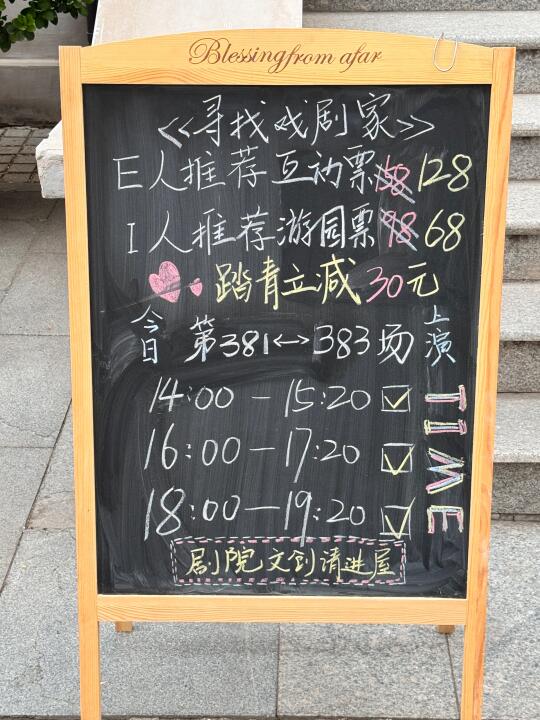 Blessing from afar
<<寻找戏剧家>>
E人推荐互动票158 128
I人推荐游园票98 68
踏青立减30元
今日 第381↔383场 上演
14:00-15:20
16:00-17:20
18:00-19:20
TIME
剧院文创请进屋